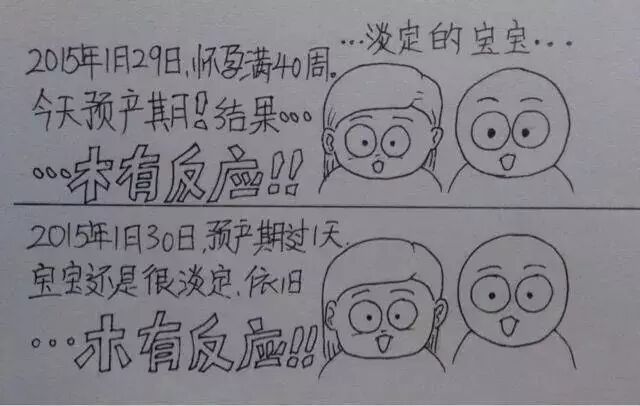 2015年1月29日,怀孕满40周。
今天预产期!结果…
…木有反应!!
…淡定的宝宝…
2015年1月30日,预产期过1天.
宝宝还是很淡定.依旧
…木有反应!!